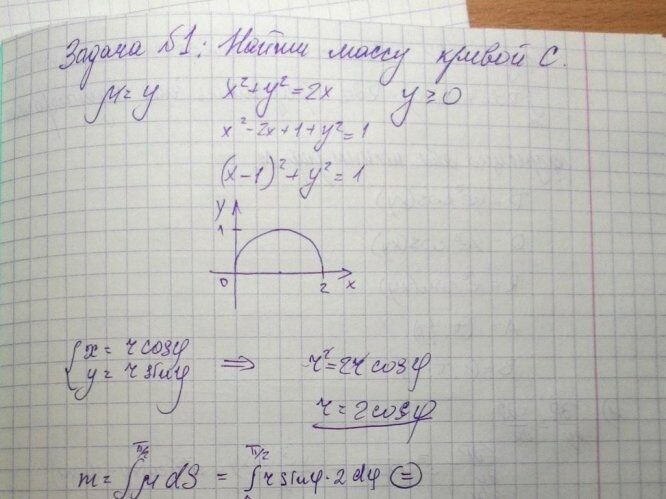 Задача №1: Найти массу кривой C.
μ = y x² + y² = 2x y ≥ 0
x² - 2x + 1 + y² = 1
(x - 1)² + y² = 1
y
1
0 2 x
{ x = r cosφ y = r sinφ ⇒ r² = 2r cosφ
r = 2cosφ
m = ∫^{π/2} μ dS = ∫^{π/2} r sinφ · 2dφ ⊜